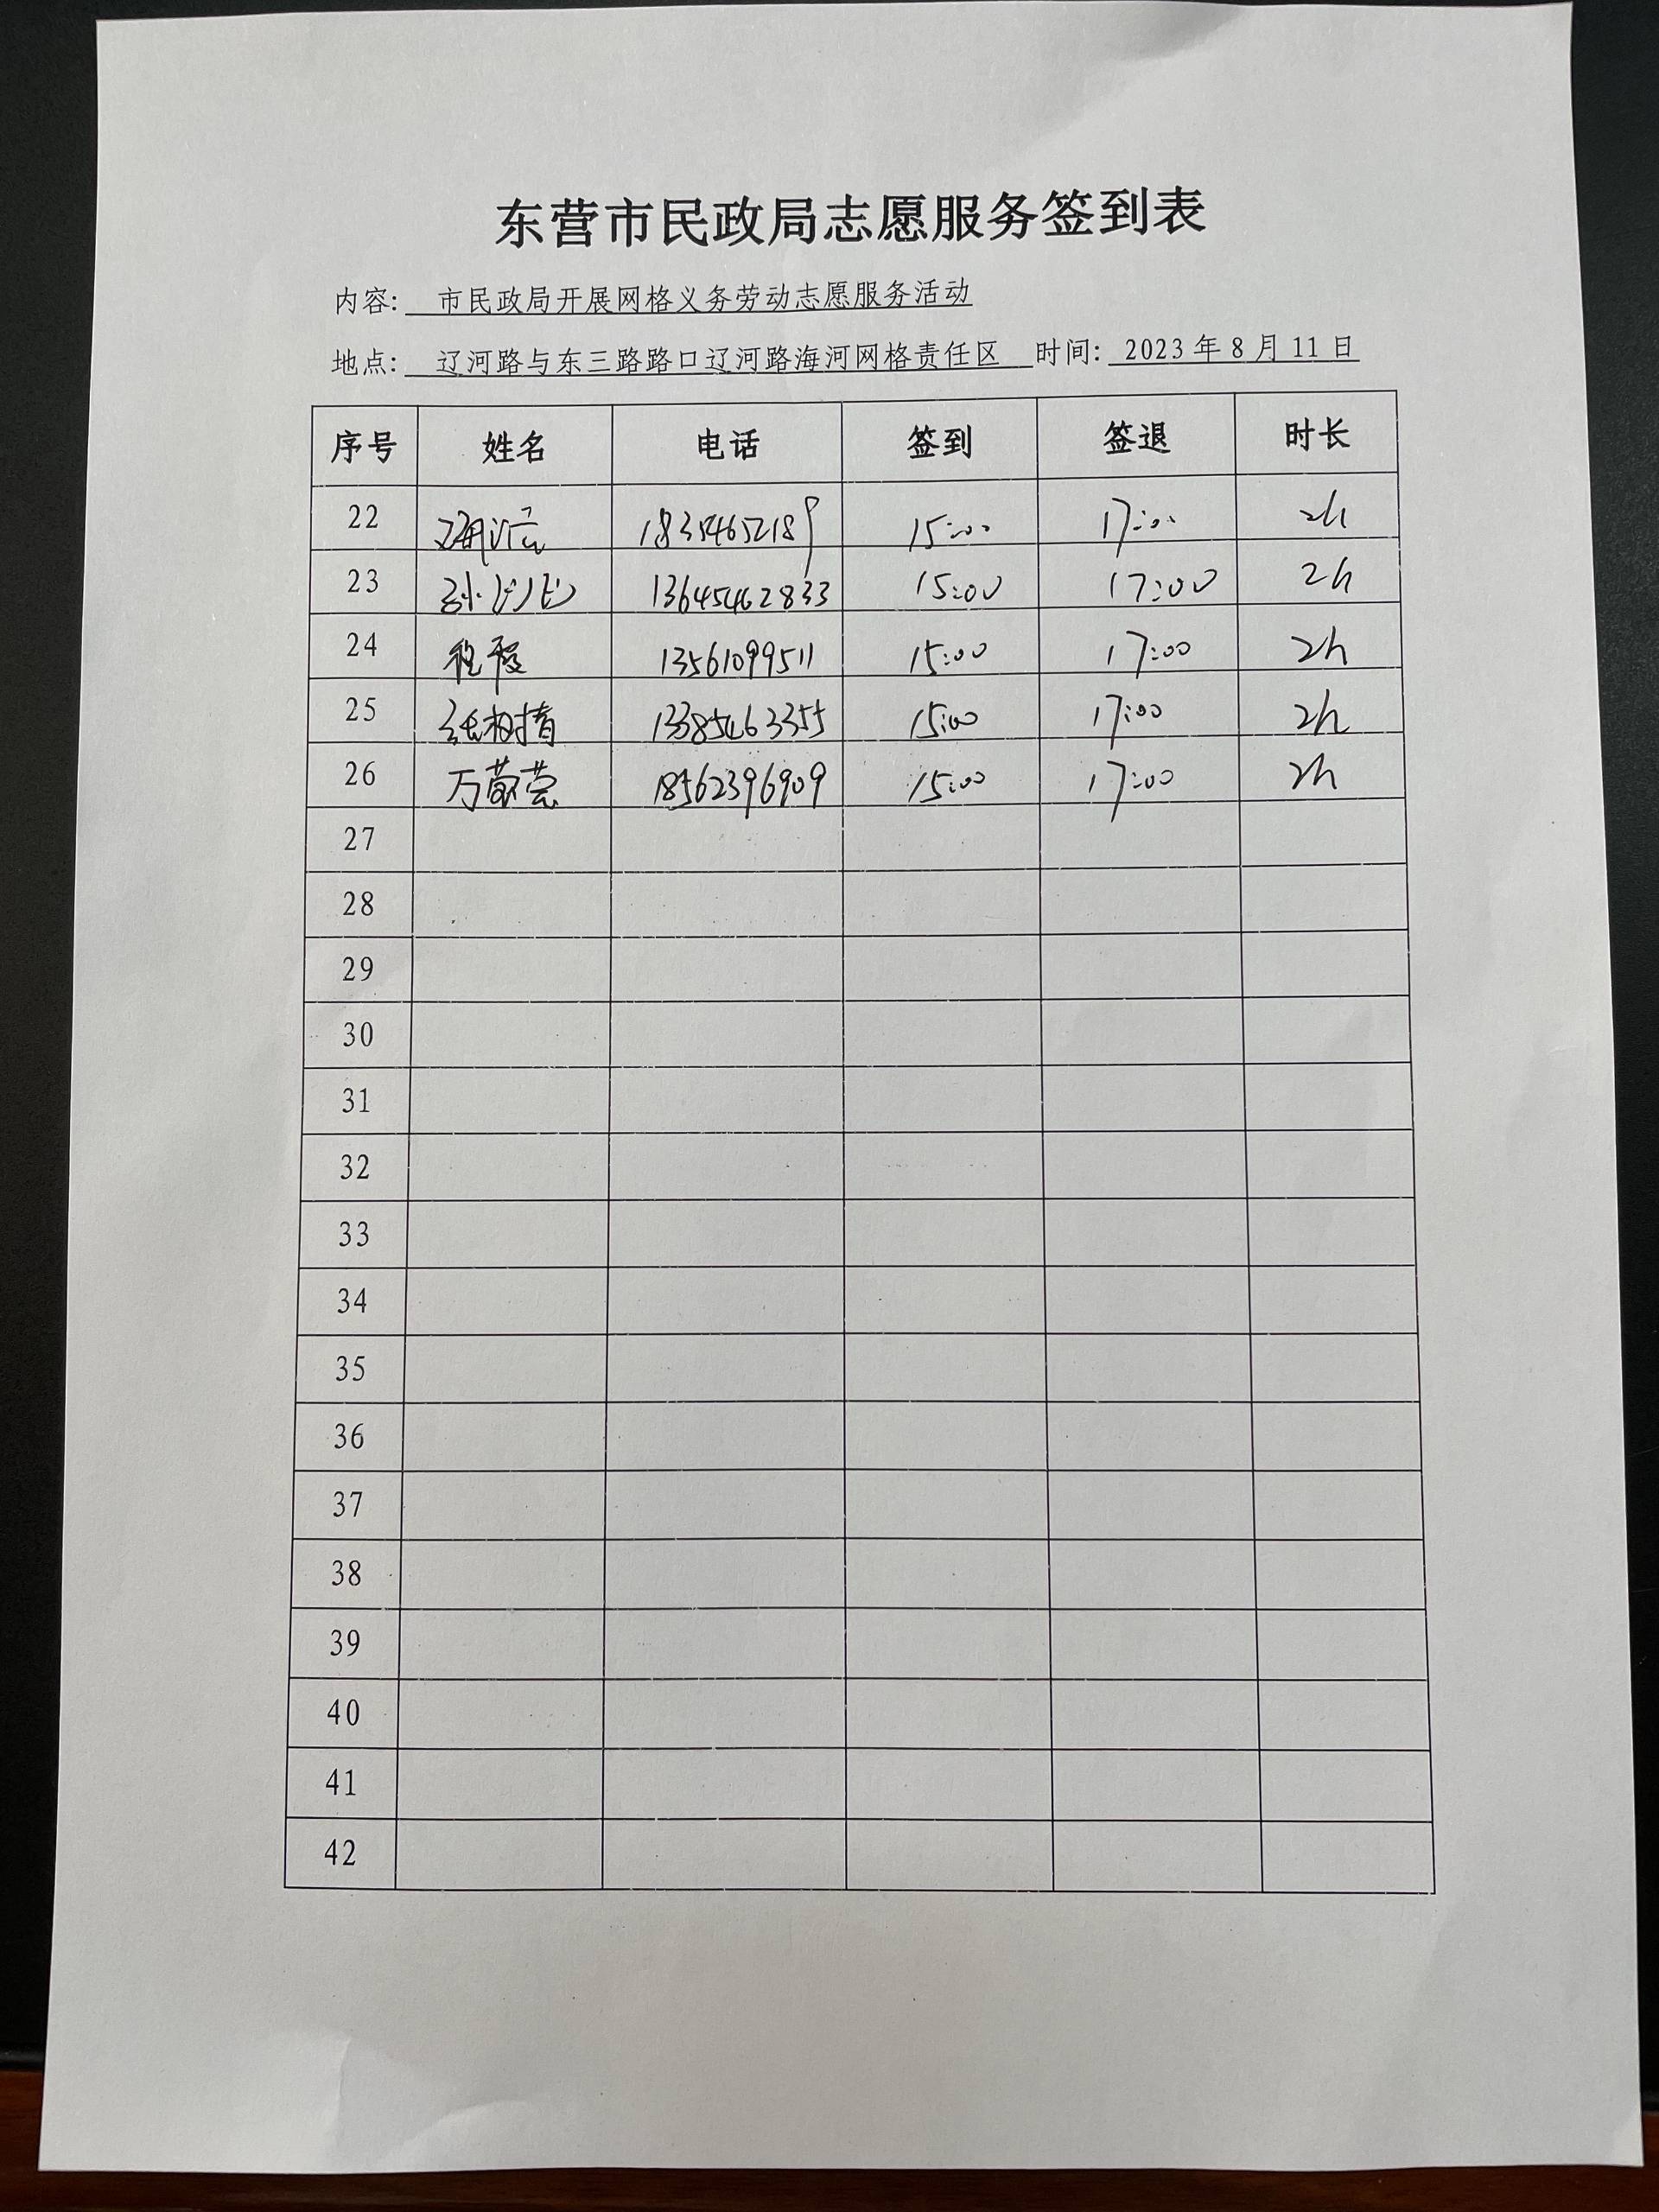 东营市民政局志愿服务签到表
内容: 市民政局开展网格义务劳动志愿服务活动
地点: 辽河路与东三路路口辽河路海河网格责任区 时间: 2023年8月11日
序号 姓名 电话 签到 签退 时长
22 18354652189 15:00 17:00 2h
23 13645462833 15:00 17:00 2h
24 程霞 13561099511 15:00 17:00 2h
25 张树楕 13385463355 15:00 17:00 2h
26 万敬莹 18562396909 15:00 17:00 2h
27
28
29
30
31
32
33
34
35
36
37
38
39
40
41
42